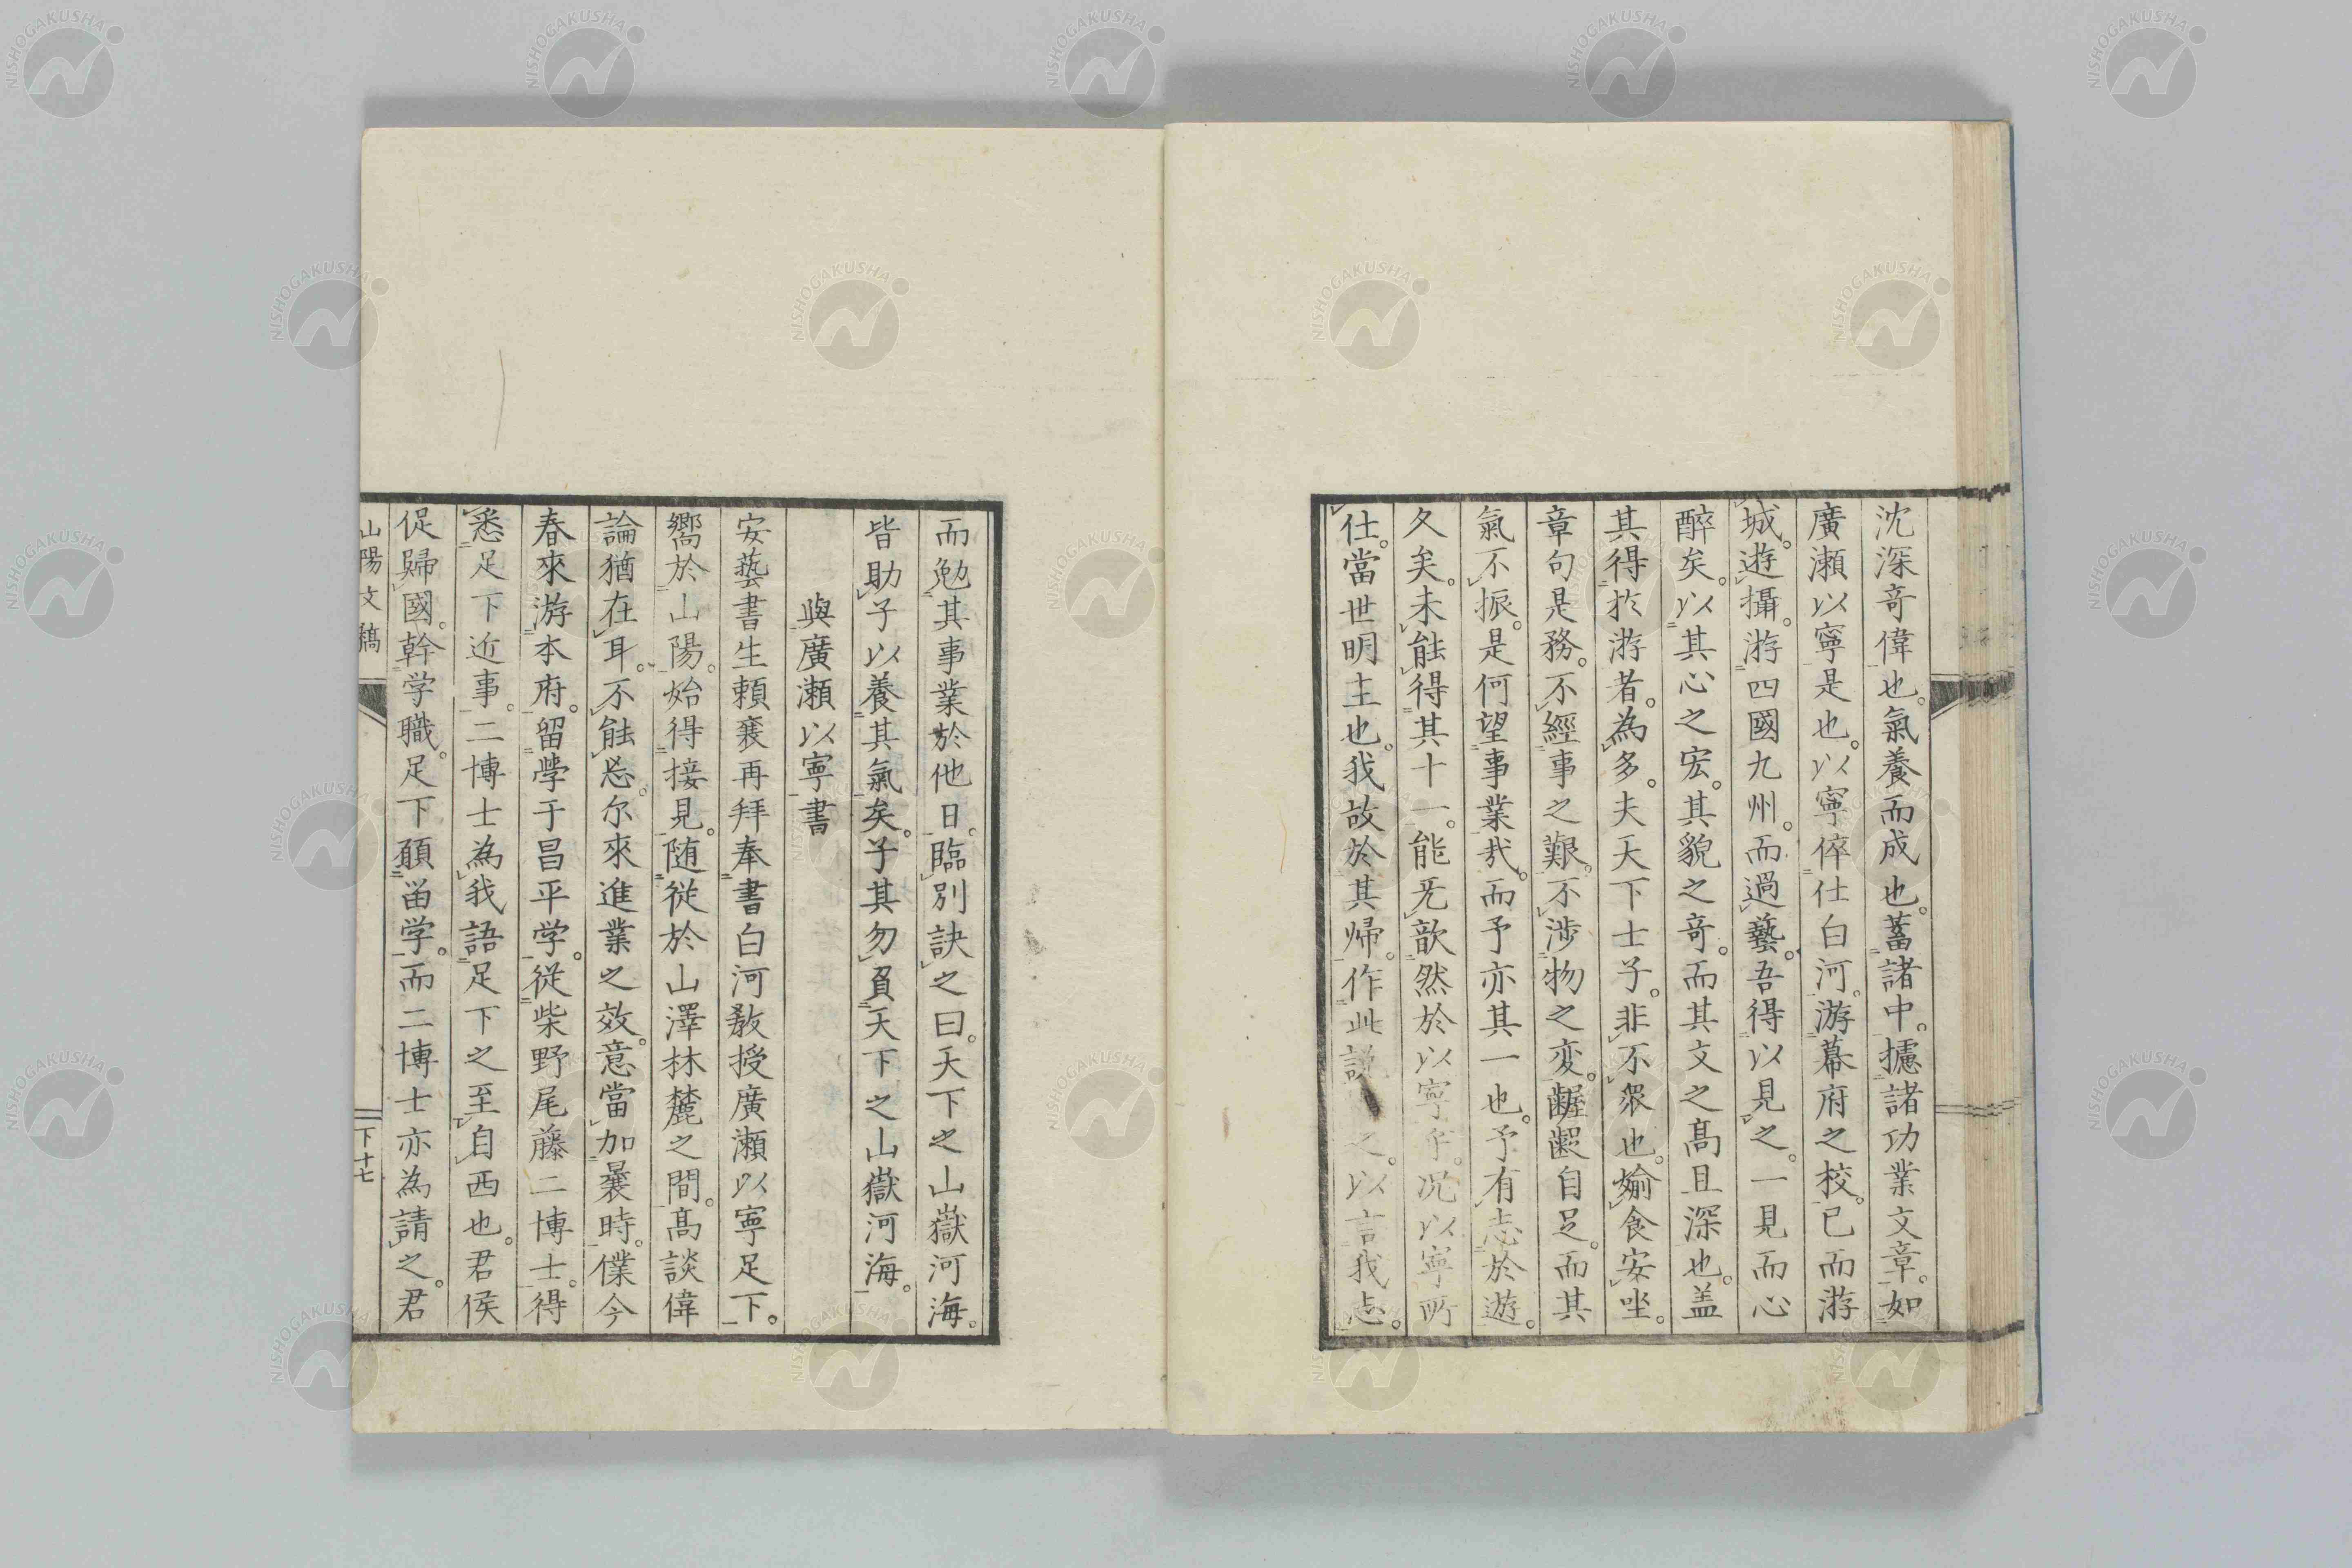 沈深奇偉也。氣養而成也。蓄諸中。攄諸功業文章。如
廣瀨以寧是也。以寧倅仕白河。游幕府之校。已而游
城。遊攝。游四國九州。而過藝。吾得以見之。一見而心
醉矣。以其心之宏。其貌之奇。而其文之高且深也。盖
其得於游者。為多。夫天下士子。非不衆也。媮食安坐。
章句是務。不經事之艱。不涉物之変。齷齪自足。而其
氣不振。是何望事業哉。而予亦其一也。予有志於遊。
久矣。未能得其十一。能旡歆然於以寧乎。况以寧所
仕。當世明主也。我故於其帰。作此説 之。以言我志。
而勉其事業於他日。臨別訣之曰。天下之山嶽河海。
皆助子以養其氣矣。子其勿負天下之山嶽河海。
與廣瀨以寧書
安藝書生頼襄再拜奉書白河敎授廣瀨以寧足下。
嚮於山陽。始得接見。随從於山澤林麓之間。高談偉
論猶在耳。不能忘。尔來進業之效。意當加曩時。僕今
春來游本府。留學于昌平学。從柴野尾藤二博士。得
悉足下近事。二博士為我語足下之至自西也。君侯
促歸國。幹学職。足下願留学。而二博士亦為請之。君
山陽文稿 下十七
NISHOGAKUSHA